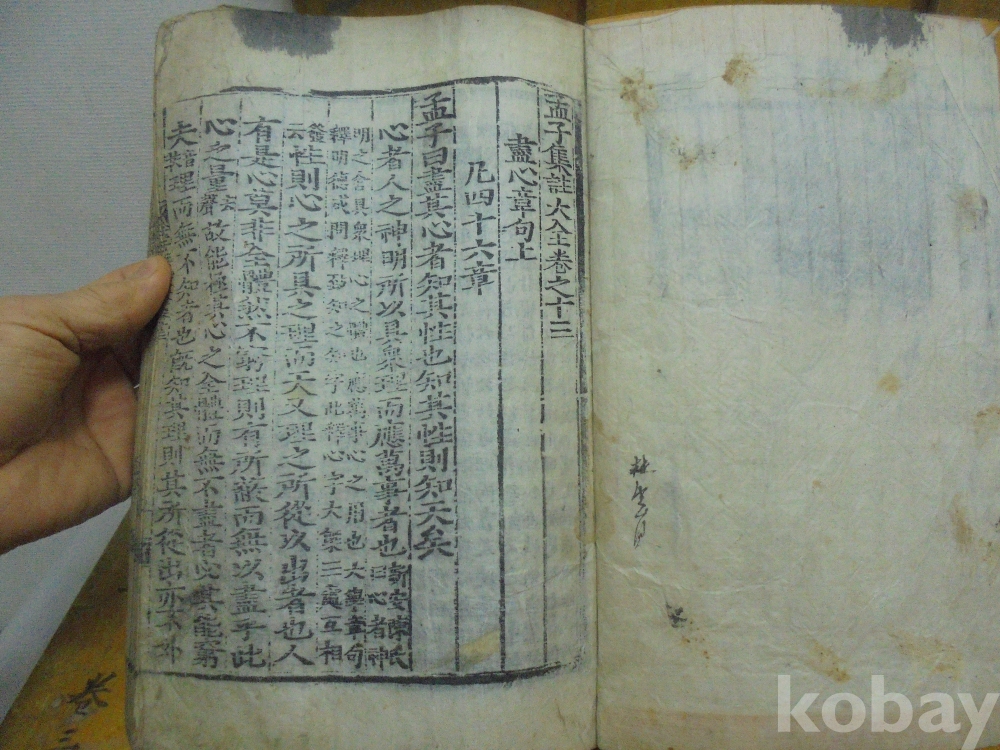 孟子集註大全卷之十三
盡心章句上
凡四十六章
孟子曰盡其心者知其性也知其性則知天矣
心者人之神明所以具衆理而應萬事者也新安陳氏曰心者神
明之舍具衆理心之體也應萬事心之用也大學章句
釋明德或問釋致知之知字此釋心字大集三處互相
發云性則心之所具之理而天又理之所從以出者也人
有是心莫非全體然不窮理則有所蔽而無以盡乎此
心之量去聲故能極其心之全體而無不盡者必其能窮
夫音扶理而無不知者也旣知其理則其所從出亦不外
卷三
kobay